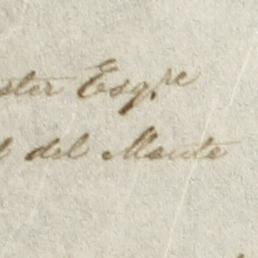 ster Esqre
l del Monte